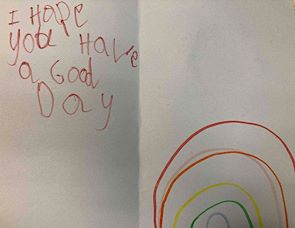 I HOPE
you HavE
a Good
Day